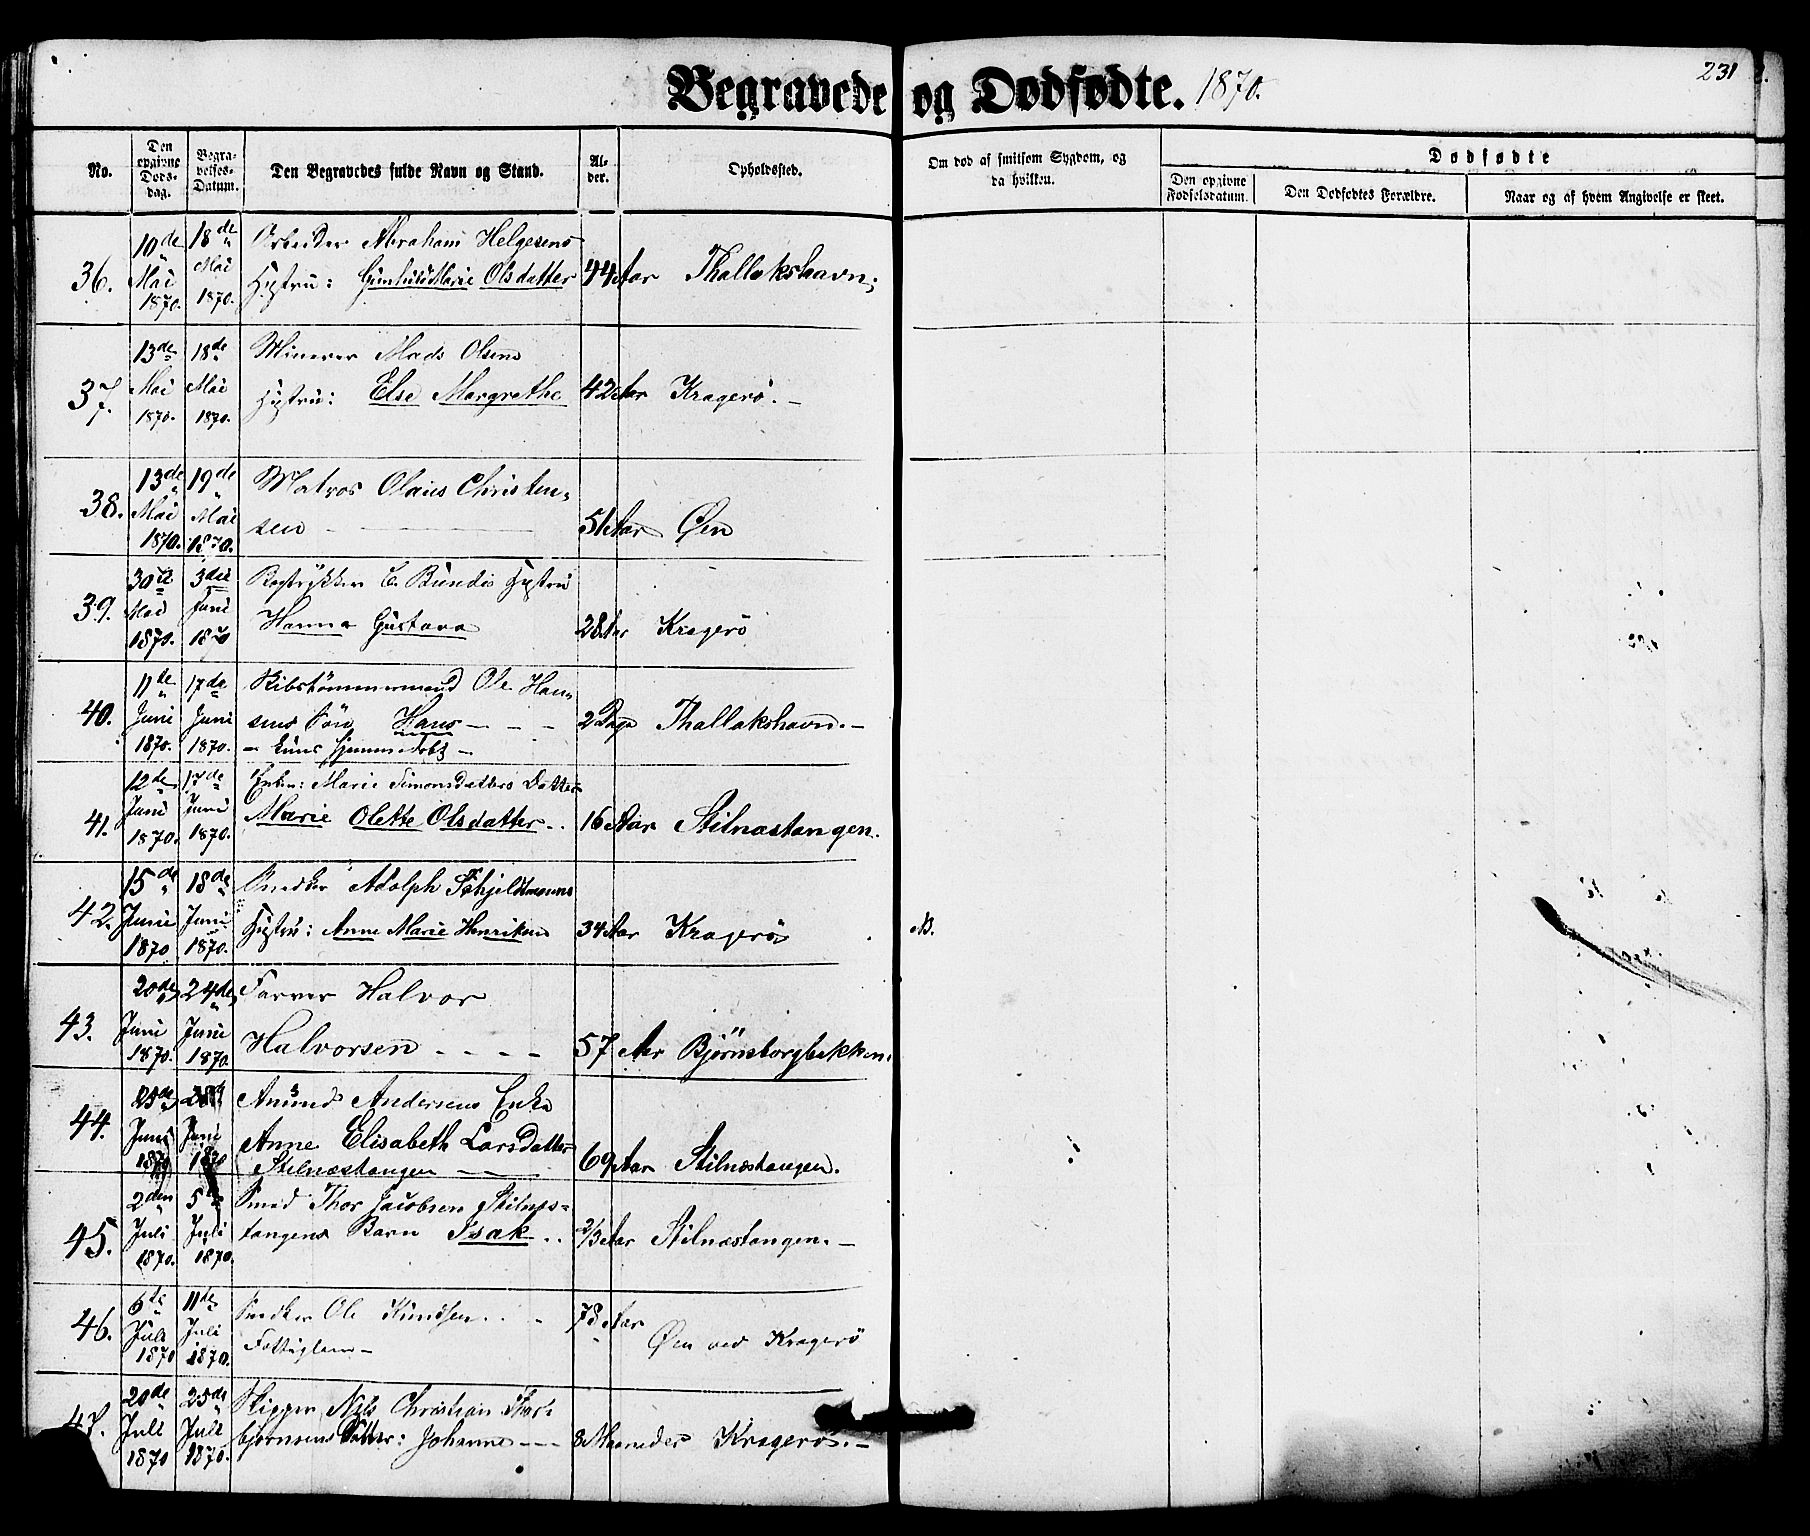 Begravede og Dødfødte. 1870.
231
No.
Den opgivne Døds-dag.
Begra-velses-Datum.
Den Begravedes fulde Navn og Stand.
Al-der.
Opholdssted.
Om død af smitsom Sygdom, og da hvilken.
Dødfødte
Den opgivne Fødselsdatum.
Den Dødfødtes Forældre.
Naar og af hvem Angivelse er skeet.
36. 10de Mai 1870. 18de Mai 1870. Arbeider Abraham Helgesens
Hustru: Marie Olsdatter 44 Aar Thallakshavn.
37. 13de Mai 1870. 18de Mai 1870. Minerer Mads Olsens
Hustru: Else Margrethe 42 Aar Kragerö. -
38. 13de Mai 1870. 19de Mai 1870. Matros Olaus Christen-
sen 51 Aar Øen
39. 30te Mai 1870. 3die Juni 1870 C. Bundis Hustru
Hanna Gustava 28 Aar Kragerö
40. 11de Juni 1870. 17de Juni 1870. Skibstömmermand Ole Han-
sens Sön Hans - - - 2 Dage Thallakshavn. -
- kuns hjemmedöbt -
41. 12te Juni 1870. 17de Juni 1870. Enke: Marie Simonsdatters Datter
Marie Olette Olsdatter. . 16 Aar Stilnæstangen.
42. 15de Juni 1870 18de Juni 1870. Snedker Adolph
Hustru: Anne Marie Henriksen 34 Aar Kragerö
43. 20de Juni 1870. 24de Juni 1870. Farver Halvor
Halvorsen - - - - 57 Aar Björnsborgbakken.
44. 25de Juni 1870 Juni 1870 Amund Andersens Enke
Anne Elisabeth Larsdatter
Stilnæstangen 69 Aar Stilnæstangen.
45. 2den Juli 1870. 5te Juli 1870. Smed Thor Jacobsen Stilnæs-
tangens Barn Isak . . 2/3 Aar Stilnæstangen. -
46. 6te Juli 1870 11de Juli 1870. Snedker Ole Knudsen. . .
Fattiglem - 78 Aar Øen ved Kragerö
47. 20de Juli 1870 25de Juli 1870. Skipper Niels Christian Thor-
björnsens Datter: Johanne - - - 8 Maaneder Kragerö. -